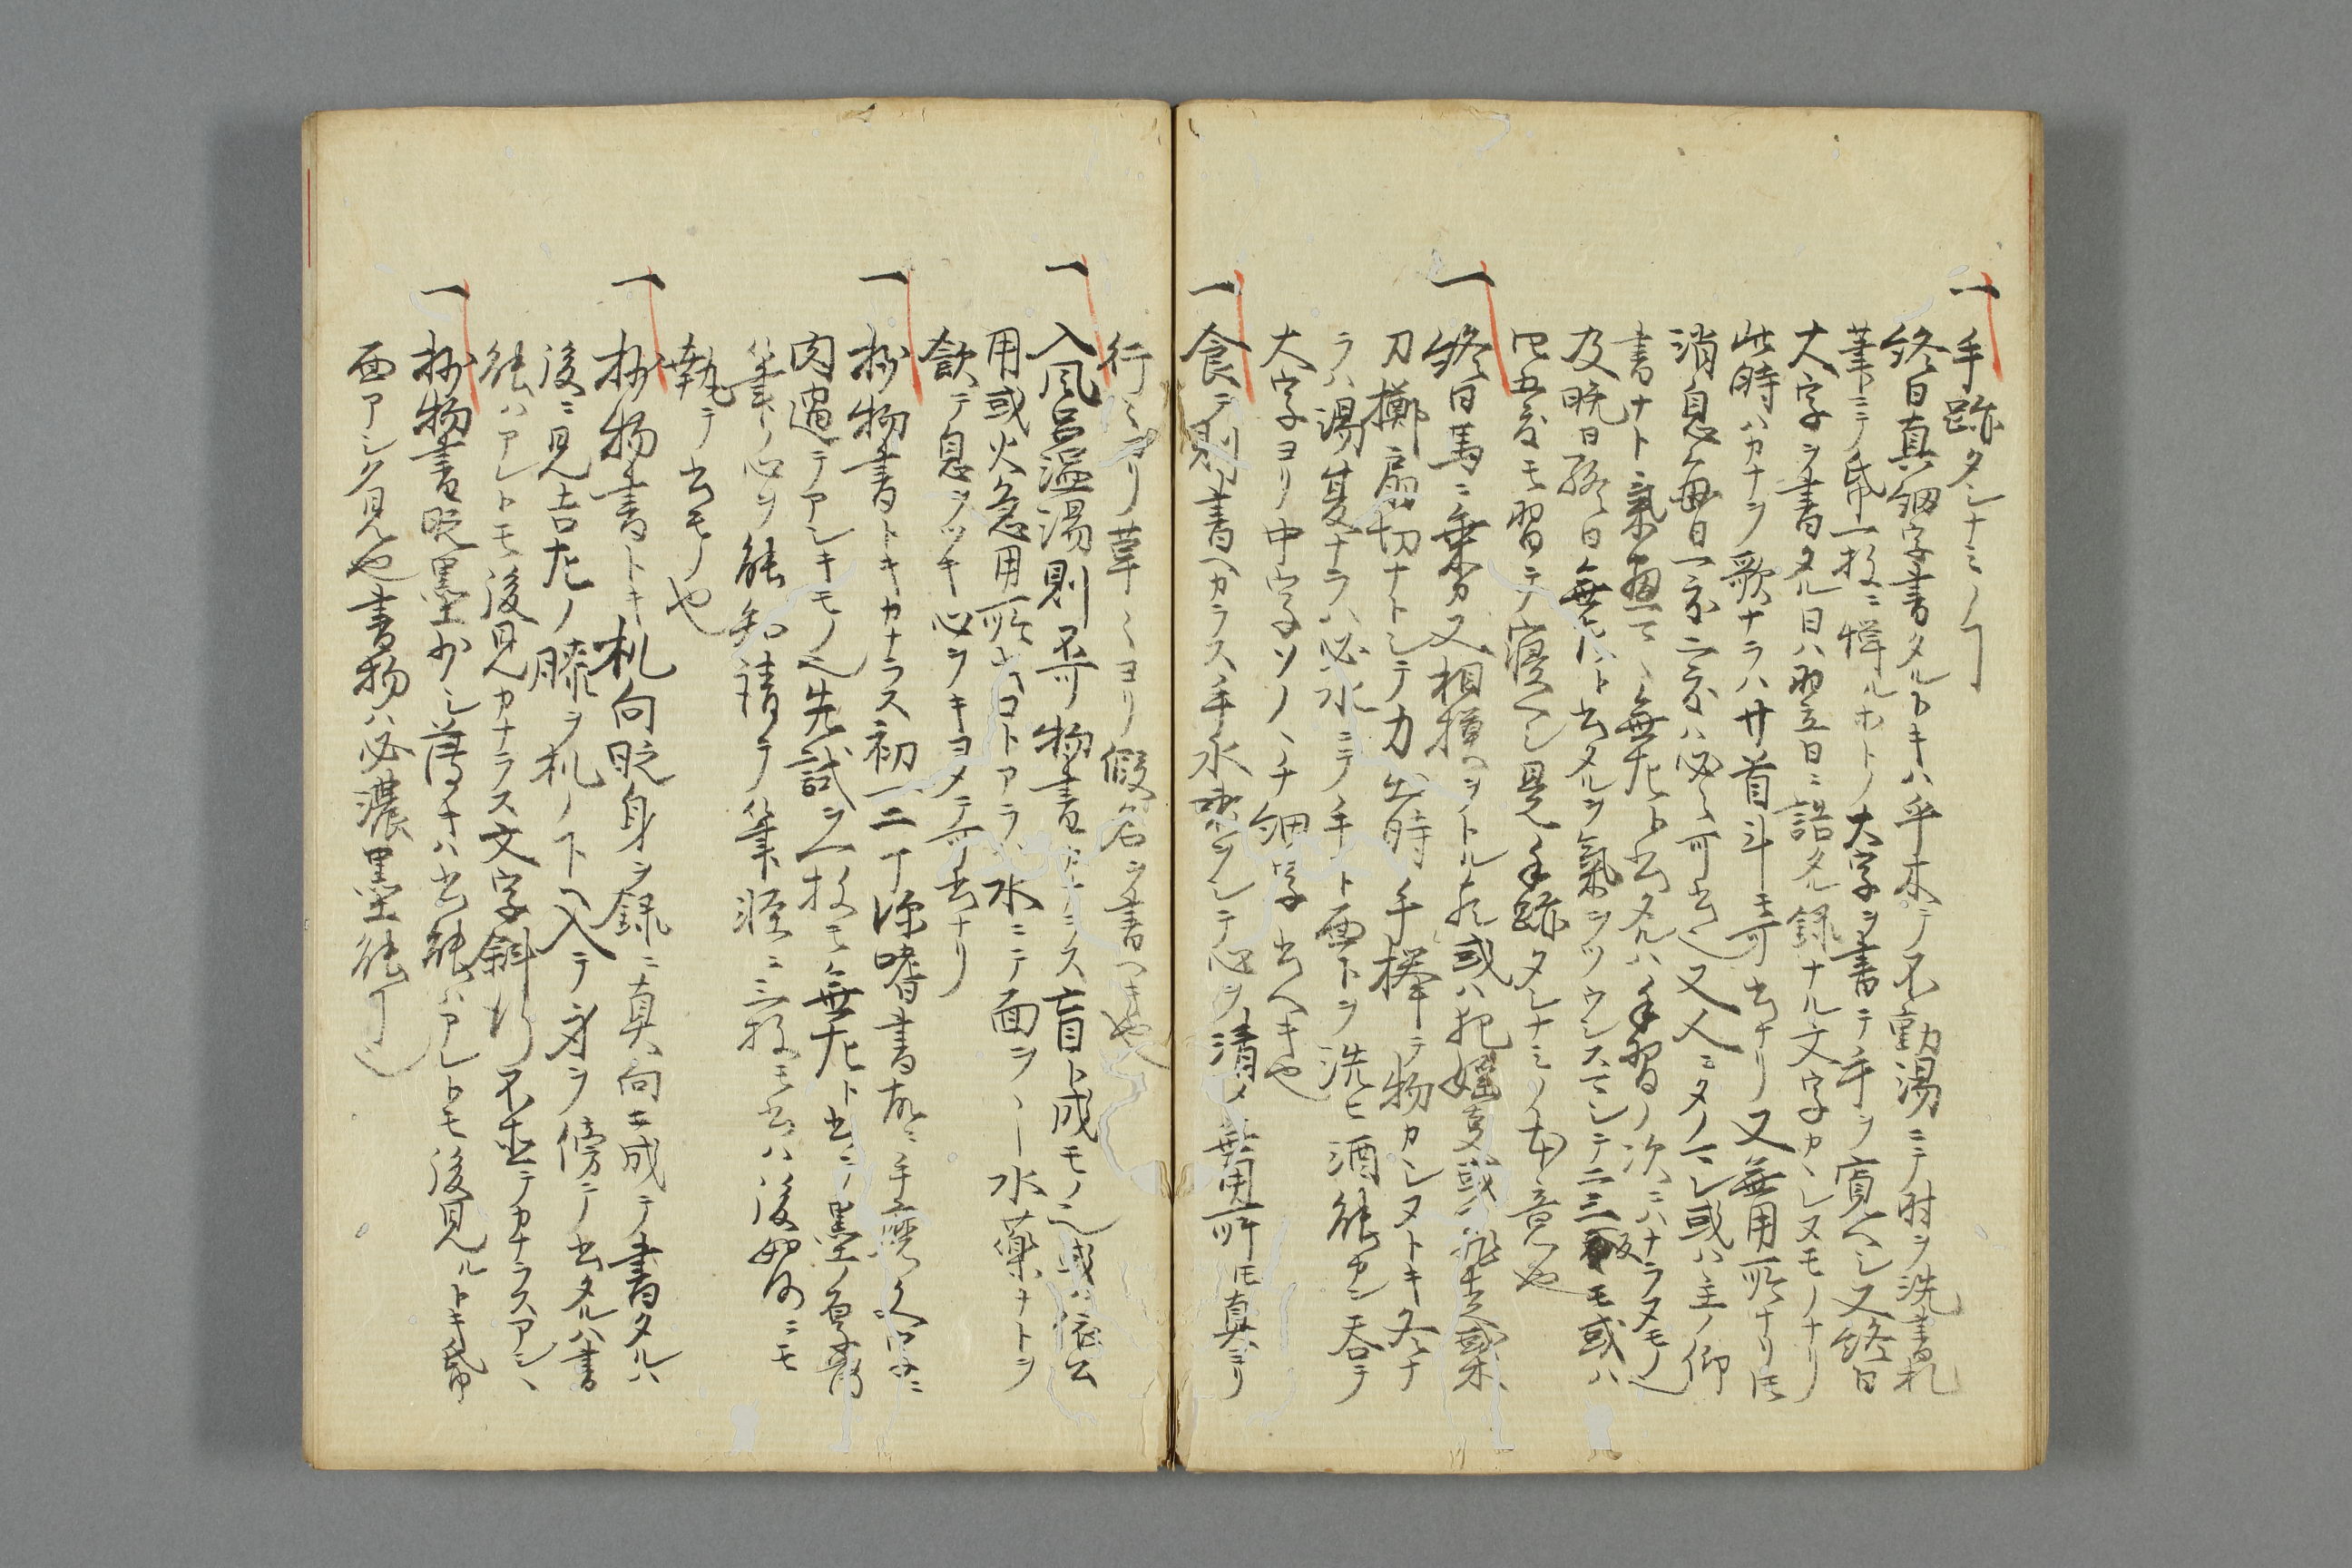 一手跡タシナミノ
終日真細字書タルトキハ
筆ニテ帋一枚ニ憚ルホトノ大字ヲ書テ手ヲ寛ヘシ又終日
大字ヲ書タル日ハ翌日ニ詰タル録ナル文字カヽレヌモノナリ
此時ハカナヲ歌ナラハ廿首斗モ可書ナリ又無用所ナリ氐
消息毎日一度二度ハ必々可書也又人ニタノマレ或ハ主ノ仰
書ナト気重テ無左ト書タルハ手習ノ次ニハナラヌモノ也
及晩日終日無左ト書タルヲ気ヲツクシステシテ二三返モ或ハ
四五度モ習テ寝ヘシ是手跡タシナミノ本意也
一終日馬ニ乗カ又相撲ヲトル歟或ハ犯婬事或ハ
刀擲扇切ナトシテ力出時手捧テ物カヽレヌトキ冬ナ
ラハ湯夏ナラハ必水ニテ手ト面トヲ洗ヒ酒能カン呑テ
大字ヨリ中字ソノヽチ細字書ヘキ也
一食テ則書ヘカラス手水ヲシテ心ヲ清メ無用所氐真ヨリ
行ミヨリ草ミヨリ假名ヲ書ヘキ也
一入風呂温湯則不可物書カナラス盲ト成モノ也或ハ依公
用或火急用所書コトアラハ水ニテ面ヲ水薬ナトヲ
飲テ息ヲツキ心ヲキヨメテ可書ナリ
一抄物書トキカナラス初一二丁深嗜書故ニ手
肉過テアシキモノ也先試ヲ一枚モ無左ト書テ墨ノ
筆ノ心ヲ能知請テ筆軽ニ三枚モ書ハ後如何ニモ
執テ書モノ也
一抄物書トキ机向時身ヲ録ニ真向ニ成テ書タルハ
後ニ見古左ノ膝ヲ机ノ下入テ身ヲ傍テ書タルハ書
能ハアレトモ後見カナラス文字斜行不直テカナラスアシヽ
一抄物書時墨少シ薄キハ書能ハアレトモ後見ルトキ帋
面アシク見也書物ハ必濃墨能也